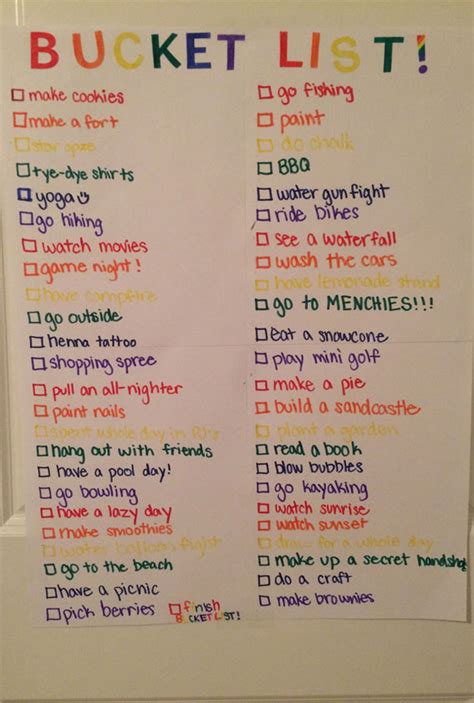 BUCKET LIST!
make cookies
make a fort
star gaze
tye-dye shirts
yoga
go hiking
watch movies
game night!
have campfire
go outside
henna tattoo
shopping spree
pull an all-nighter
paint nails
spend whole day in PJ's
hang out with friends
have a pool day!
go bowling
have a lazy day
make smoothies
water balloon fight
go to the beach
have a picnic
pick berries
finish
BUCKET LIST!
go fishing
paint
do chalk
BBQ
water gun fight
ride bikes
see a waterfall
wash the cars
have lemonade stand
go to MENCHIES!!!
eat a snowcone
play mini golf
make a pie
build a sandcastle
plant a garden
read a book
blow bubbles
go kayaking
watch sunrise
watch sunset
draw for a whole day
make up a secret handshake!
do a craft
make brownies